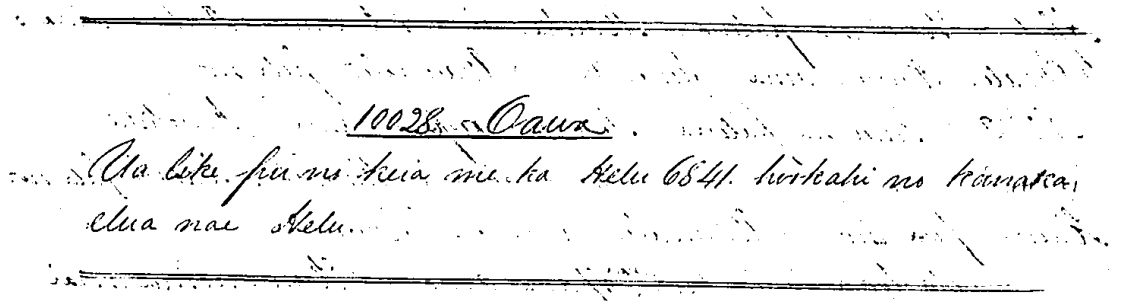 10028. Oawa
Ua like pu no keia me ka Helu 6841. hookahi no kanaka,
elua nae Helu.